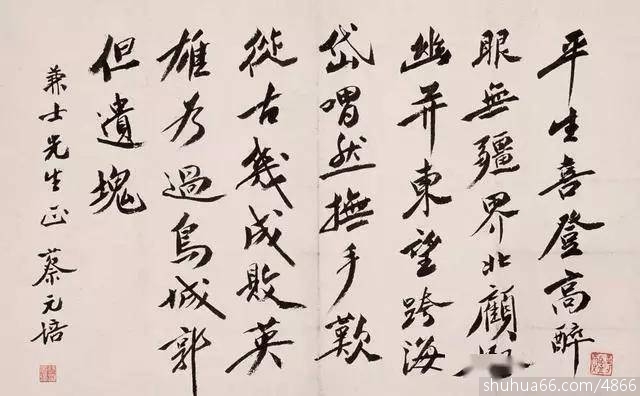 平生喜登高醉
眼無疆界北顧
幽并東望跨海
岱喟然撫手歎
從古幾成敗英
雄為過鳥城郭
但遺塊
兼士先生正 蔡元培
shuhua66.com/4866